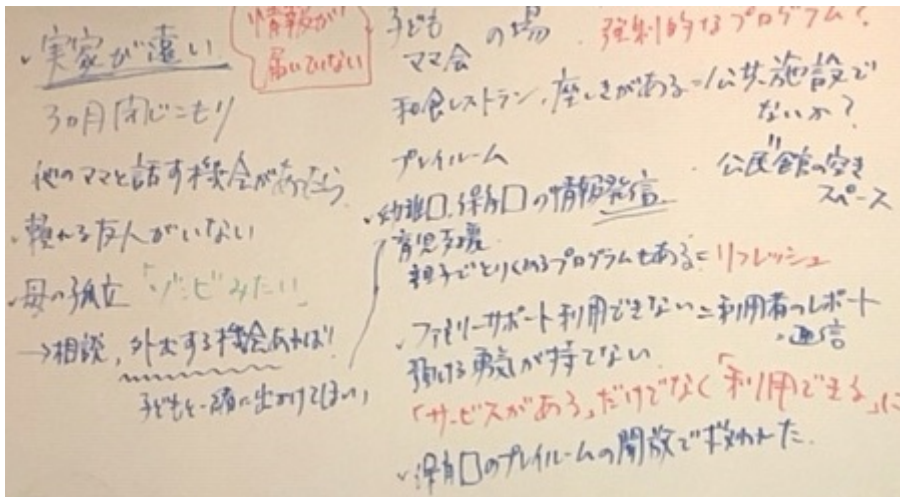 情報が
届いていない
・実家が遠い
3ヵ月閉じこもり
他のママと話す機会があったら
・頼れる友人がいない
・母の孤立 「ゾンビみたい」
→相談、外出する機会あれば!
子どもと一緒に出かけてほしい
子ども
ママ会 の場
強制的なプログラム?
和食レストラン、座しきがある=公共施設で
ないか?
プレイルーム
公民館の空き
スペース
・幼稚口、保育口の情報発信
育児支援
親子でとりくめるプログラムもある=リフレッシュ
・ファミリーサポート利用できない=利用者のレポート
・通信
預ける勇気が持てない
「サービスがある」だけでなく「利用できる」に
・保育口のプレイルームの開放で救われた。